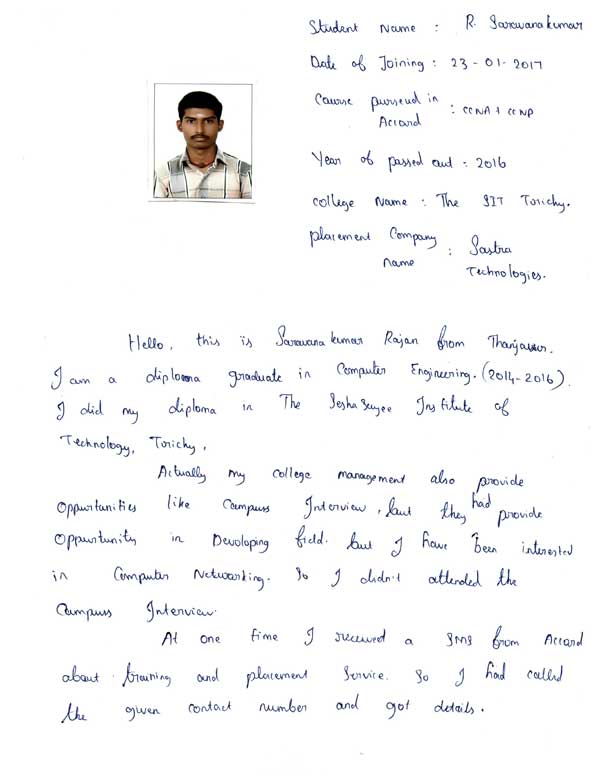 Student Name : R. Saravanakumar
Date of Joining : 23-01-2017
Course purseud in : CCNA + CCNP
Accard
Year of passed out : 2016
college Name : The SIT Turichy.
placement Company : Sastra
Name Technologies.
Hello, this is Saravana kumar Rajan from Thanjavur.
I am a diploma graduate in Computer Engineering. (2014-2016).
I did my diploma in The Sesha Sayee Institute of
Technology, Turichy,
Actually my college management also provide
oppurtunities like Campuss Interview, but they had provide
oppurtunity in Devoloping field. but I have been interested
in Computer Networking. So I didn't attended the
Campuss Interview.
At one time I received a SMS from Accard
about training and placement Service. So I had called
the given contact number and got details.